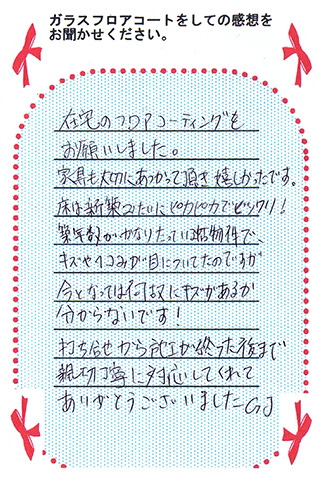 ガラスフロアコートをしての感想を
お聞かせください。
在宅のフロアコーティングを
お願いしました。
家具も大切にあつかって頂き嬉しかったです。
床は新築みたいにピカピカでビックリ!
築年数がかなりたっている物件で、
キズやヘコみが目についてたのですが
今となっては何処にキズがあるか
分からないです!
打ち合せから施工が終った後まで
親切丁寧に対応してくれて
ありがとうございました